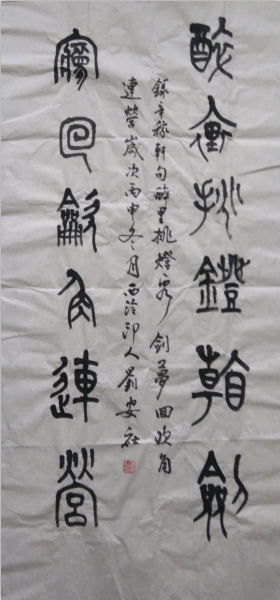 醉裏挑鐙看劍
夢回龡角連營
錄辛稼軒句醉里挑燈看劍夢回吹角
連營歲次丙申冬月西泠印人劉安社